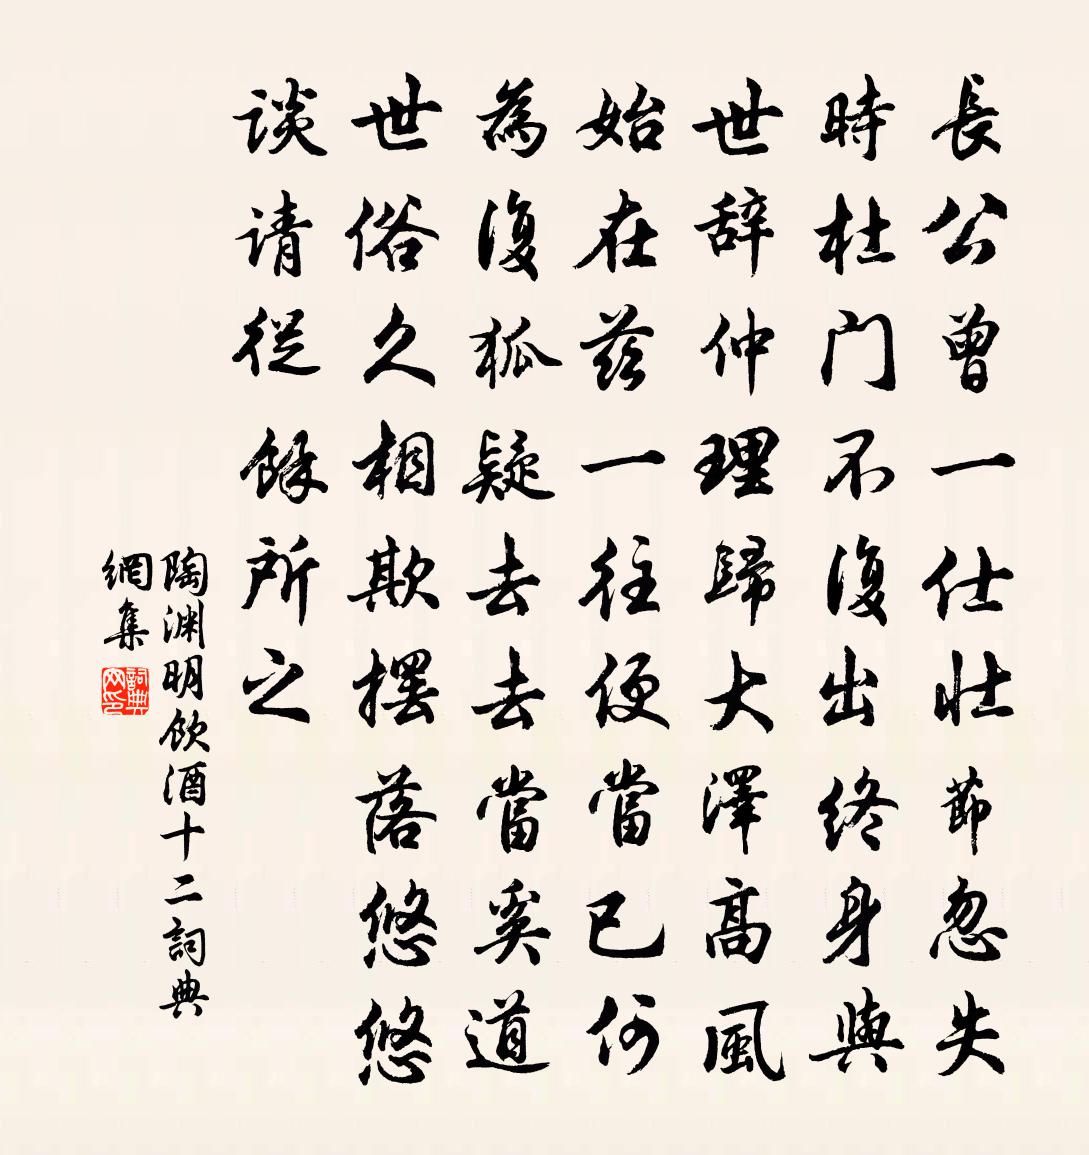 長公曾一仕壯節忽失
時杜门不復出終身與
世辞仲理歸大澤高風
始在茲一往便當已何
為復狐疑去去當奚道
世俗久相欺擺落悠悠
谈请從餘所之
陶渊明飲酒十二詞典
網集
詞典
网印